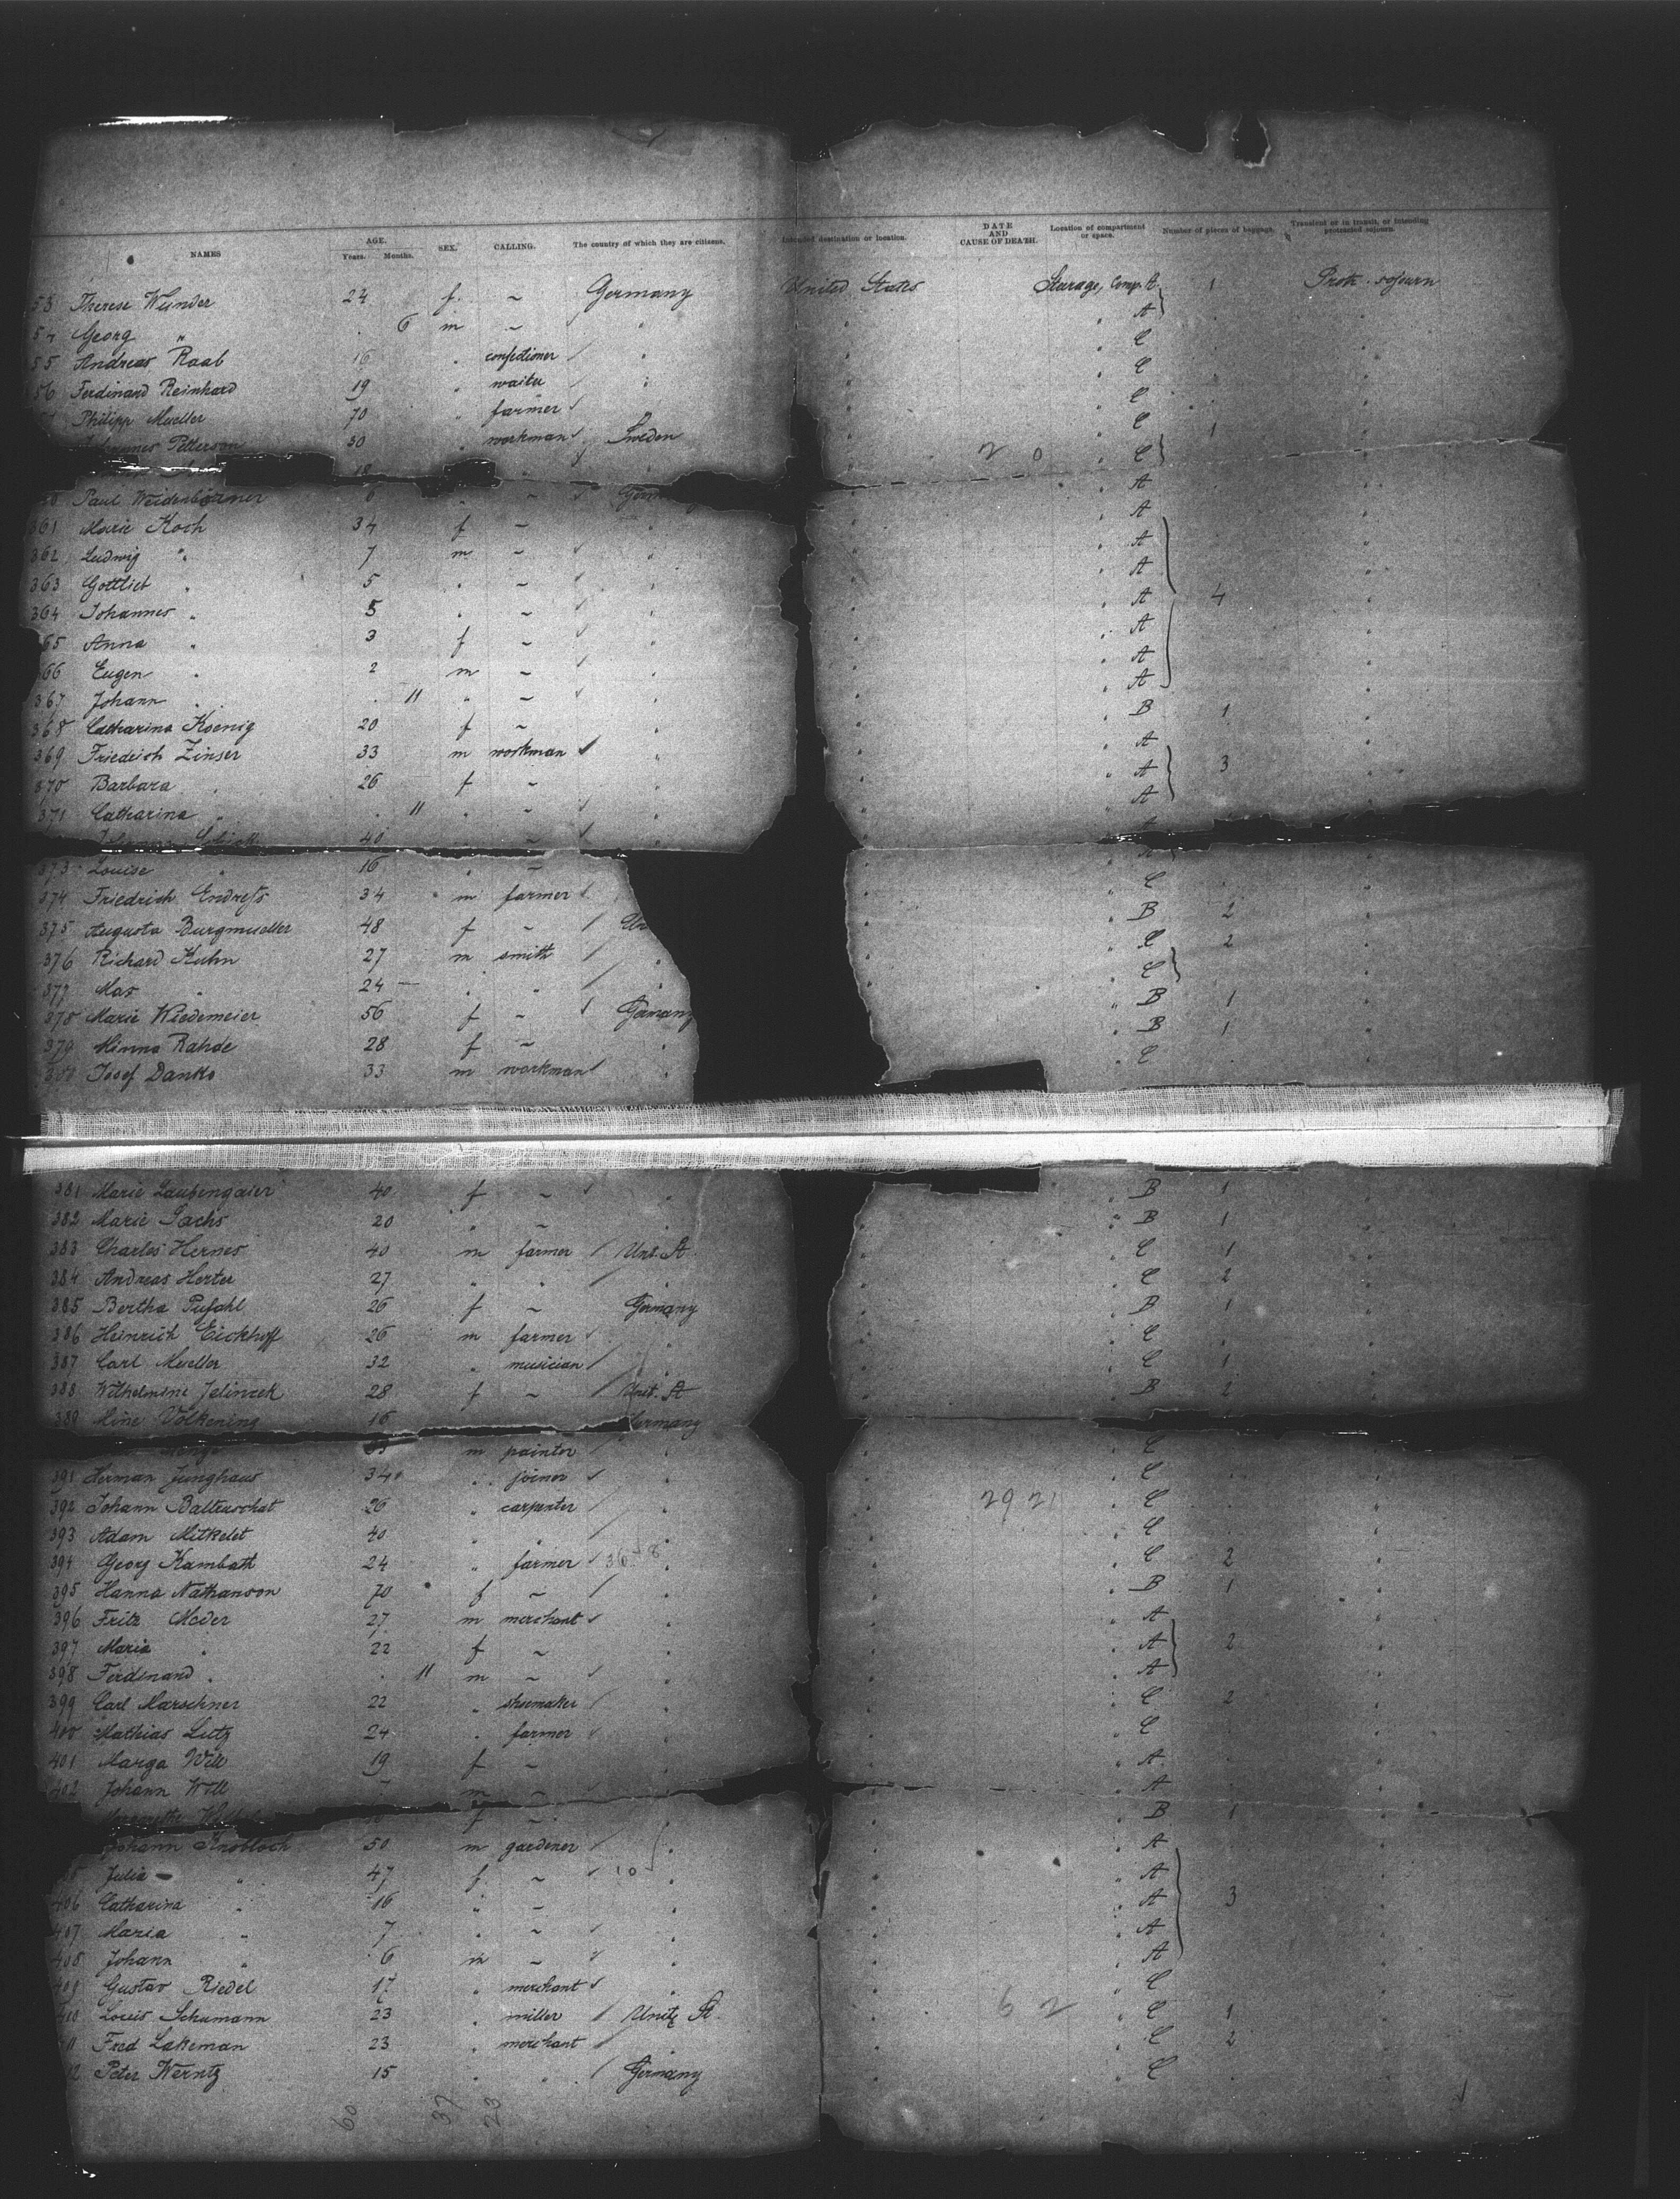 NAMES AGE. Years. Months. SEX. CALLING. The country of which they are citizens. Intended destination or location. DATE AND CAUSE OF DEATH. Location of compartment or space. Number of pieces of baggage. Transient or in transit, or intending protracted sojourn.
53 Therese Wunder 24 f. ~ Germany United States Stearage, Comp. A 1 Protr. sojourn
54 Georg " 6 m ~ " " " A
55 Andreas Raab 16 " confectioner " " " C
56 Ferdinand Reinhard 19 " waiter " " " C
Philipp Mueller 70 " farmer " " " C
Petterson 30 " workman Sweden " " C 1
18 " " 2 0 " C
Paul Weidenbörner 6 " ~ " " A
361 Marie Koch 34 f ~ " " " A
362 Ludwig " 7 m ~ " " " A
363 Gottlieb " 5 " ~ " " " A
364 Johannes " 5 " ~ " " " A 4
65 Anna " 3 f ~ " " " A
66 Eugen " 2 m ~ " " " A
367 Johann " 11 " ~ " " " A
368 Catharina Koenig 20 f ~ " " " B 1
369 Friedrich Zinser 33 m workman " " " A
370 Barbara " 26 f ~ " " A 3
371 Catharina " 11 " ~ " " A
40 ~ A
373 Louise " 16 " ~ " " A
374 Friedrich Endreſs 34 m farmer " " C
375 Augusta Burgmueller 48 f ~ Un " " B 2
376 Richard Kuhn 27 m smith " " " C 2
377 Max " 24 " " " " " C
378 Marie Wiedemeier 56 f ~ Germany " B 1
379 Minna Rahde 28 f ~ " " B 1
Josef Danko 33 m workman " " C
381 Marie Laubengaier 40 f ~ " " B 1
382 Marie Sachs 20 " ~ " " " B 1
383 Charles Hernes 40 m farmer Unt. St. " " C 1
384 Andreas Herter 27 " " " " " C 2
385 Bertha Pufahl 26 f ~ Germany " " B 1
386 Heinrich Eickhoff 26 m farmer " " " C
387 Carl Mueller 32 " musician " " " C 1
388 Wilhelmine Jelinek 28 f ~ Unit. St " " B 2
389 Mine Volkening 16 Germany
m painter " " C
391 Herman Junghaus 34 " joiner " " " C
392 Johann Baltruschat 26 " carpenter " " 29 21 " C
393 Adam Mitkelet 40 " " " " " C
394 Georg Kambath 24 " farmer " " " C 2
395 Hanna Nathanson 70 f ~ " " " B 1
396 Fritz Meder 27 m merchant " " " A
397 Maria " 22 f ~ " " " A 2
398 Ferdinand " 11 m ~ " " " A
399 Carl Marschner 22 " shoemaker " " " C 2
400 Mathias Lutz 24 " farmer " " " C
401 Marga Will 19 f ~ " " " A
402 Johann Will m " " " A
f ~ " " B 1
Johann Knobloch 50 m gardener " " " A
Julia " 47 f ~ 10 " " " A
406 Catharina " 16 " ~ " " " A 3
407 Maria " 7 " ~ " " " A
408 Johann " 6 m ~ " " " A
409 Gustav Riedel 17 " merchant " " " C
410 Louis Schumann 23 " miller Unit. St. " 6 2 " C 1
11 Fred Lakeman 23 " merchant " " " C 2
12 Peter Werntz 15 " " Germany " " C
60 37 23